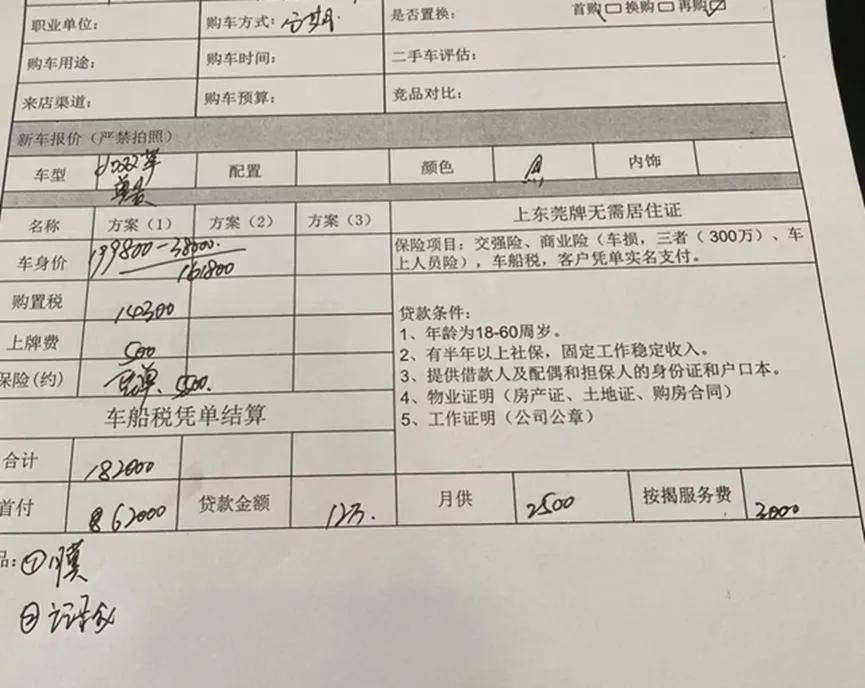 职业单位： 购车方式：分期 是否置换： 首购□换购□再购☑
购车用途： 购车时间： 二手车评估：
来店渠道： 购车预算： 竞品对比：
新车报价（严禁拍照）
车型 配置 颜色 内饰
名称 方案（1） 方案（2） 方案（3） 上东莞牌无需居住证
车身价 199800-38000. 161800
保险项目：交强险、商业险（车损，三者（300万）、车
上人员险），车船税，客户凭单实名支付。
购置税 14300
上牌费 500
保险(约) 凭单. 5500.
车船税凭单结算
贷款条件：
1、年龄为18-60周岁。
2、有半年以上社保，固定工作稳定收入。
3、提供借款人及配偶和担保人的身份证和户口本。
4、物业证明（房产证、土地证、购房合同）
5、工作证明（公司公章）
合计 182000
首付 62000 贷款金额 12万. 月供 2500 按揭服务费 3000
品：①膜
②记录仪